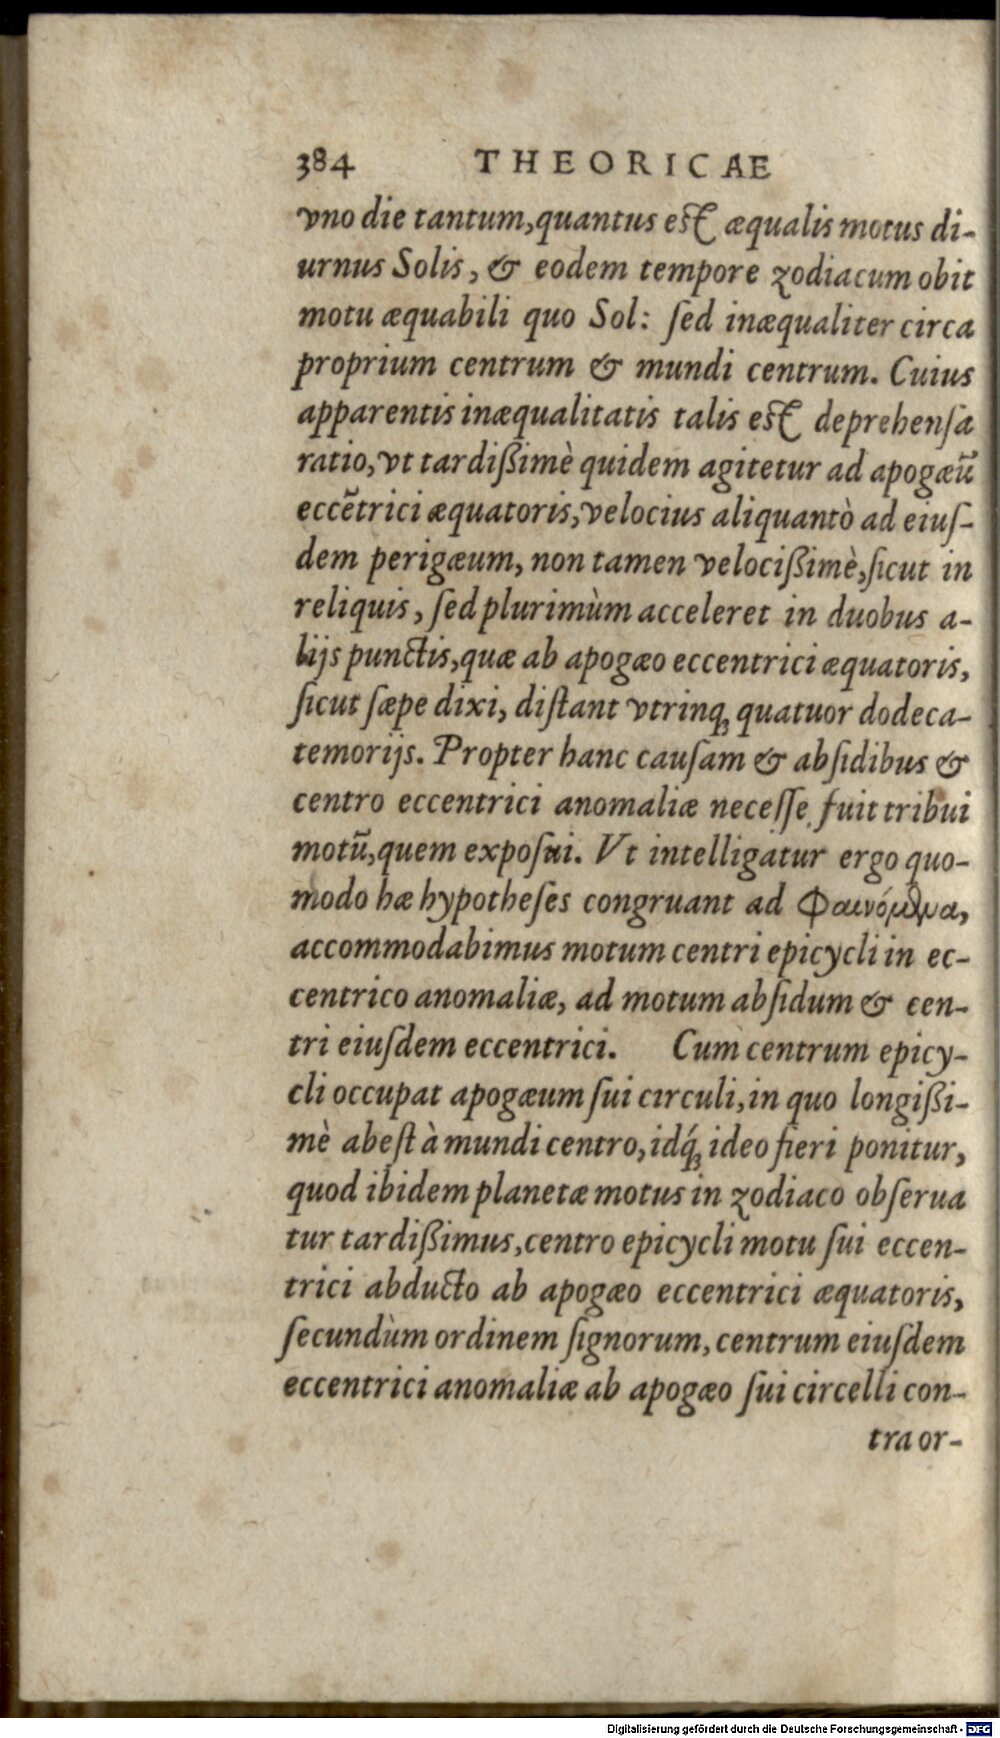 384 THEORICAE
vno die tantum, quantus est æqualis motus di-
urnus Solis, & eodem tempore zodiacum obit
motu æquabili quo Sol: ſed inæqualiter circa
proprium centrum & mundi centrum. Cuius
apparentis inæqualitatis talis est deprehenſa
ratio, vt tardißimè quidem agitetur ad apogæū
eccẽtrici æquatoris, velocius aliquantò ad eiuſ-
dem perigæum, non tamen velocißimè, ſicut in
reliquis, ſed plurimùm acceleret in duobus a-
lijs punctis, quæ ab apogæo eccentrici æquatoris,
ſicut ſæpe dixi, diſtant vtrinq; quatuor dodeca-
temorijs. Propter hanc cauſam & abſidibus &
centro eccentrici anomaliæ neceſſe fuit tribui
motū, quem expoſui. Vt intelligatur ergo quo-
modo hæ hypotheſes congruant ad Φαινόμενα,
accommodabimus motum centri epicycli in ec-
centrico anomaliæ, ad motum abſidum & cen-
tri eiuſdem eccentrici. Cum centrum epicy-
cli occupat apogæum ſui circuli, in quo longißi-
mè abeſt à mundi centro, idq́; ideo fieri ponitur,
quod ibidem planetæ motus in zodiaco obſerua
tur tardißimus, centro epicycli motu ſui eccen-
trici abducto ab apogæo eccentrici æquatoris,
ſecundùm ordinem ſignorum, centrum eiuſdem
eccentrici anomaliæ ab apogæo ſui circelli con-
tra or-
Digitalisierung gefördert durch die Deutsche Forschungsgemeinschaft - DFG